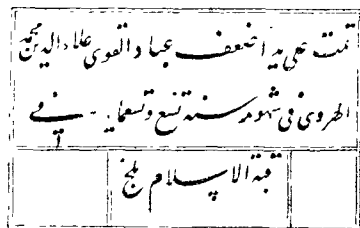 تمت علی ید اضعف عباد القوی علاء الدین محمد
الهروی فی شهور سنة تسع وتسعمایه فی
قبة الاسلام بلخ